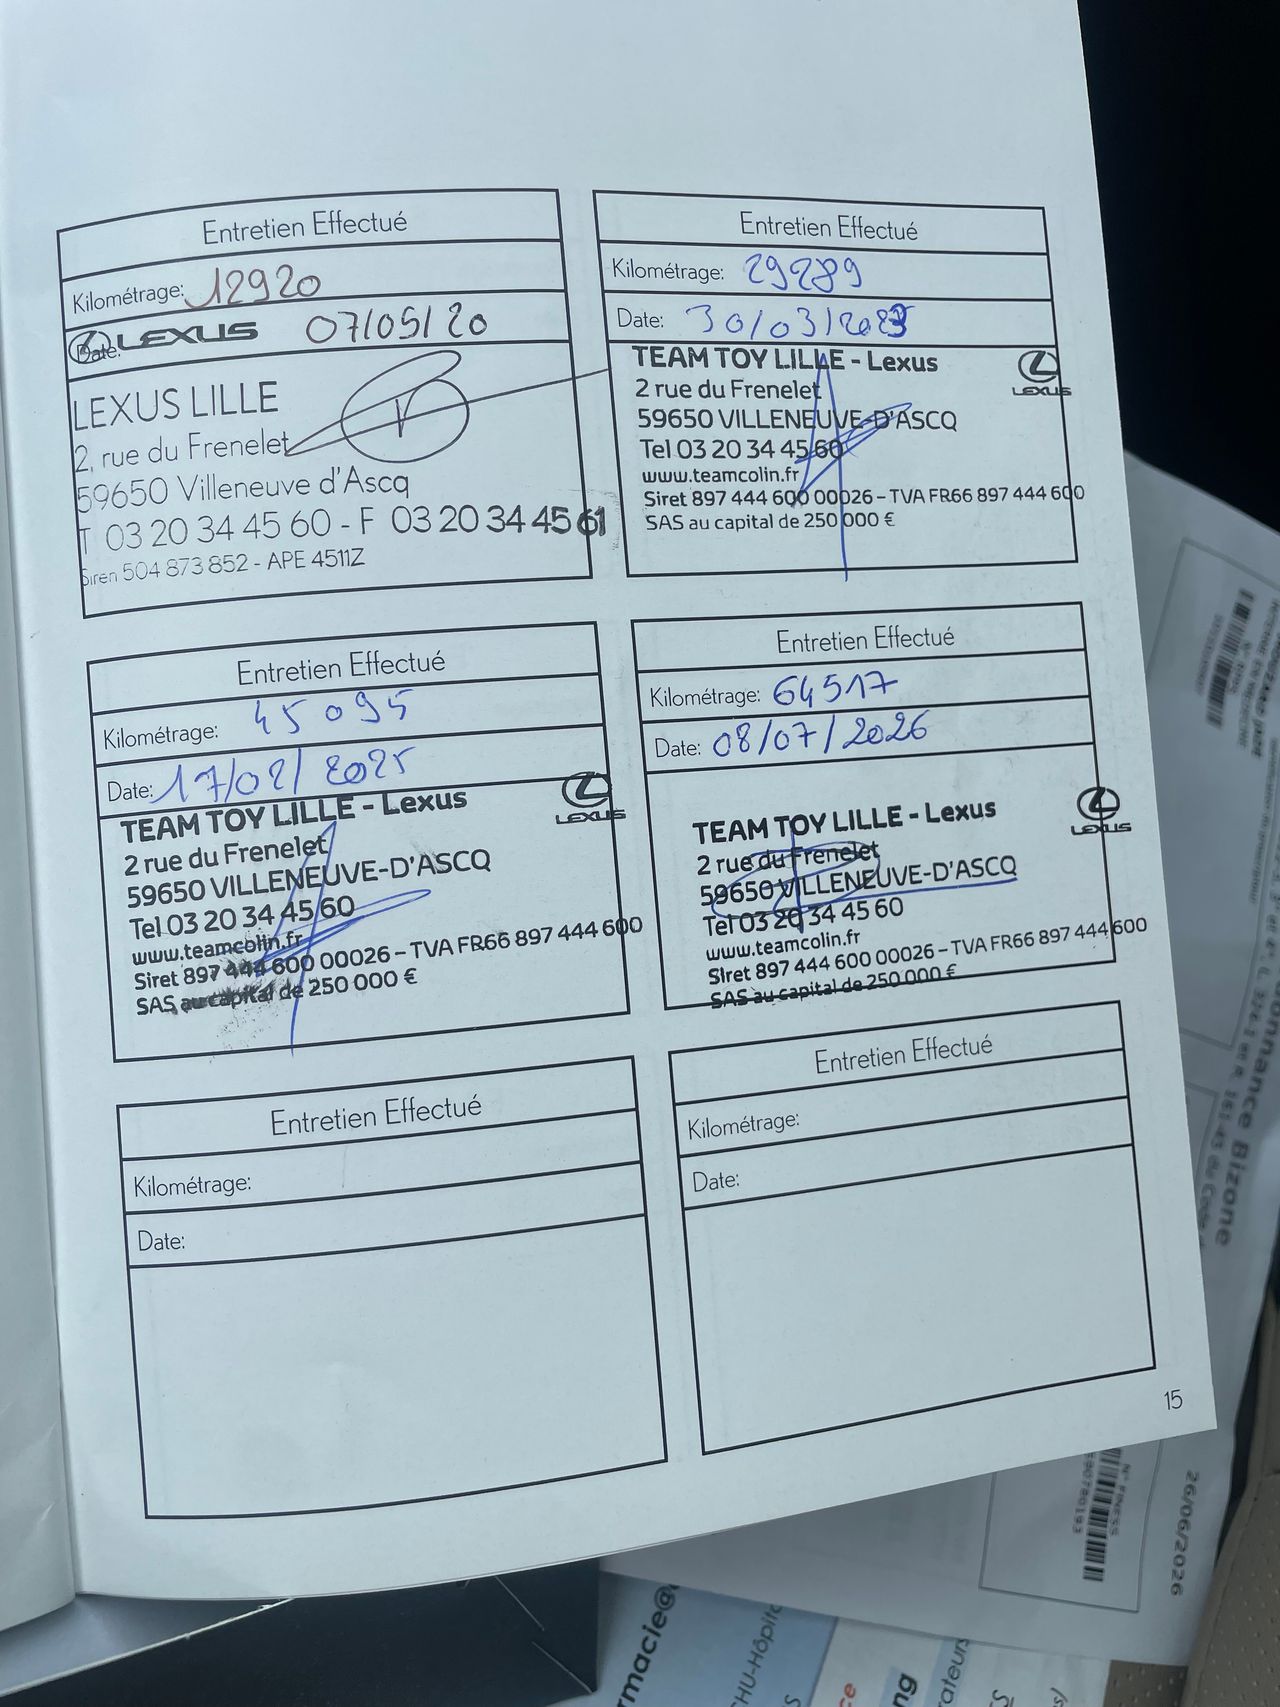 Entretien Effectué
Kilométrage: 12920
Date: 07/05/20
LEXUS
LEXUS LILLE
2, rue du Frenelet
59650 Villeneuve d'Ascq
T 03 20 34 45 60 - F 03 20 34 45 61
Siren 504 873 852 - APE 4511Z
Entretien Effectué
Kilométrage: 29289
Date: 30/03/2023
TEAM TOY LILLE - Lexus
LEXUS
2 rue du Frenelet
59650 VILLENEUVE-D'ASCQ
Tel 03 20 34 45 60
www.teamcolin.fr
Siret 897 444 600 00026 – TVA FR66 897 444 600
SAS au capital de 250 000 €
Entretien Effectué
Kilométrage: 45095
Date: 17/02/2025
TEAM TOY LILLE - Lexus
LEXUS
2 rue du Frenelet
59650 VILLENEUVE-D'ASCQ
Tel 03 20 34 45 60
www.teamcolin.fr
Siret 897 444 600 00026 – TVA FR66 897 444 600
SAS au capital de 250 000 €
Entretien Effectué
Kilométrage: 64517
Date: 08/07/2026
TEAM TOY LILLE - Lexus
LEXUS
2 rue du Frenelet
59650 VILLENEUVE-D'ASCQ
Tel 03 20 34 45 60
www.teamcolin.fr
Siret 897 444 600 00026 – TVA FR66 897 444 600
SAS au capital de 250 000 €
Entretien Effectué
Kilométrage:
Date:
Entretien Effectué
Kilométrage:
Date:
15
onnance Bizone
N° FINESS
26/06/2026
rmacie@
CHU-Hôpit
ateurs
ng